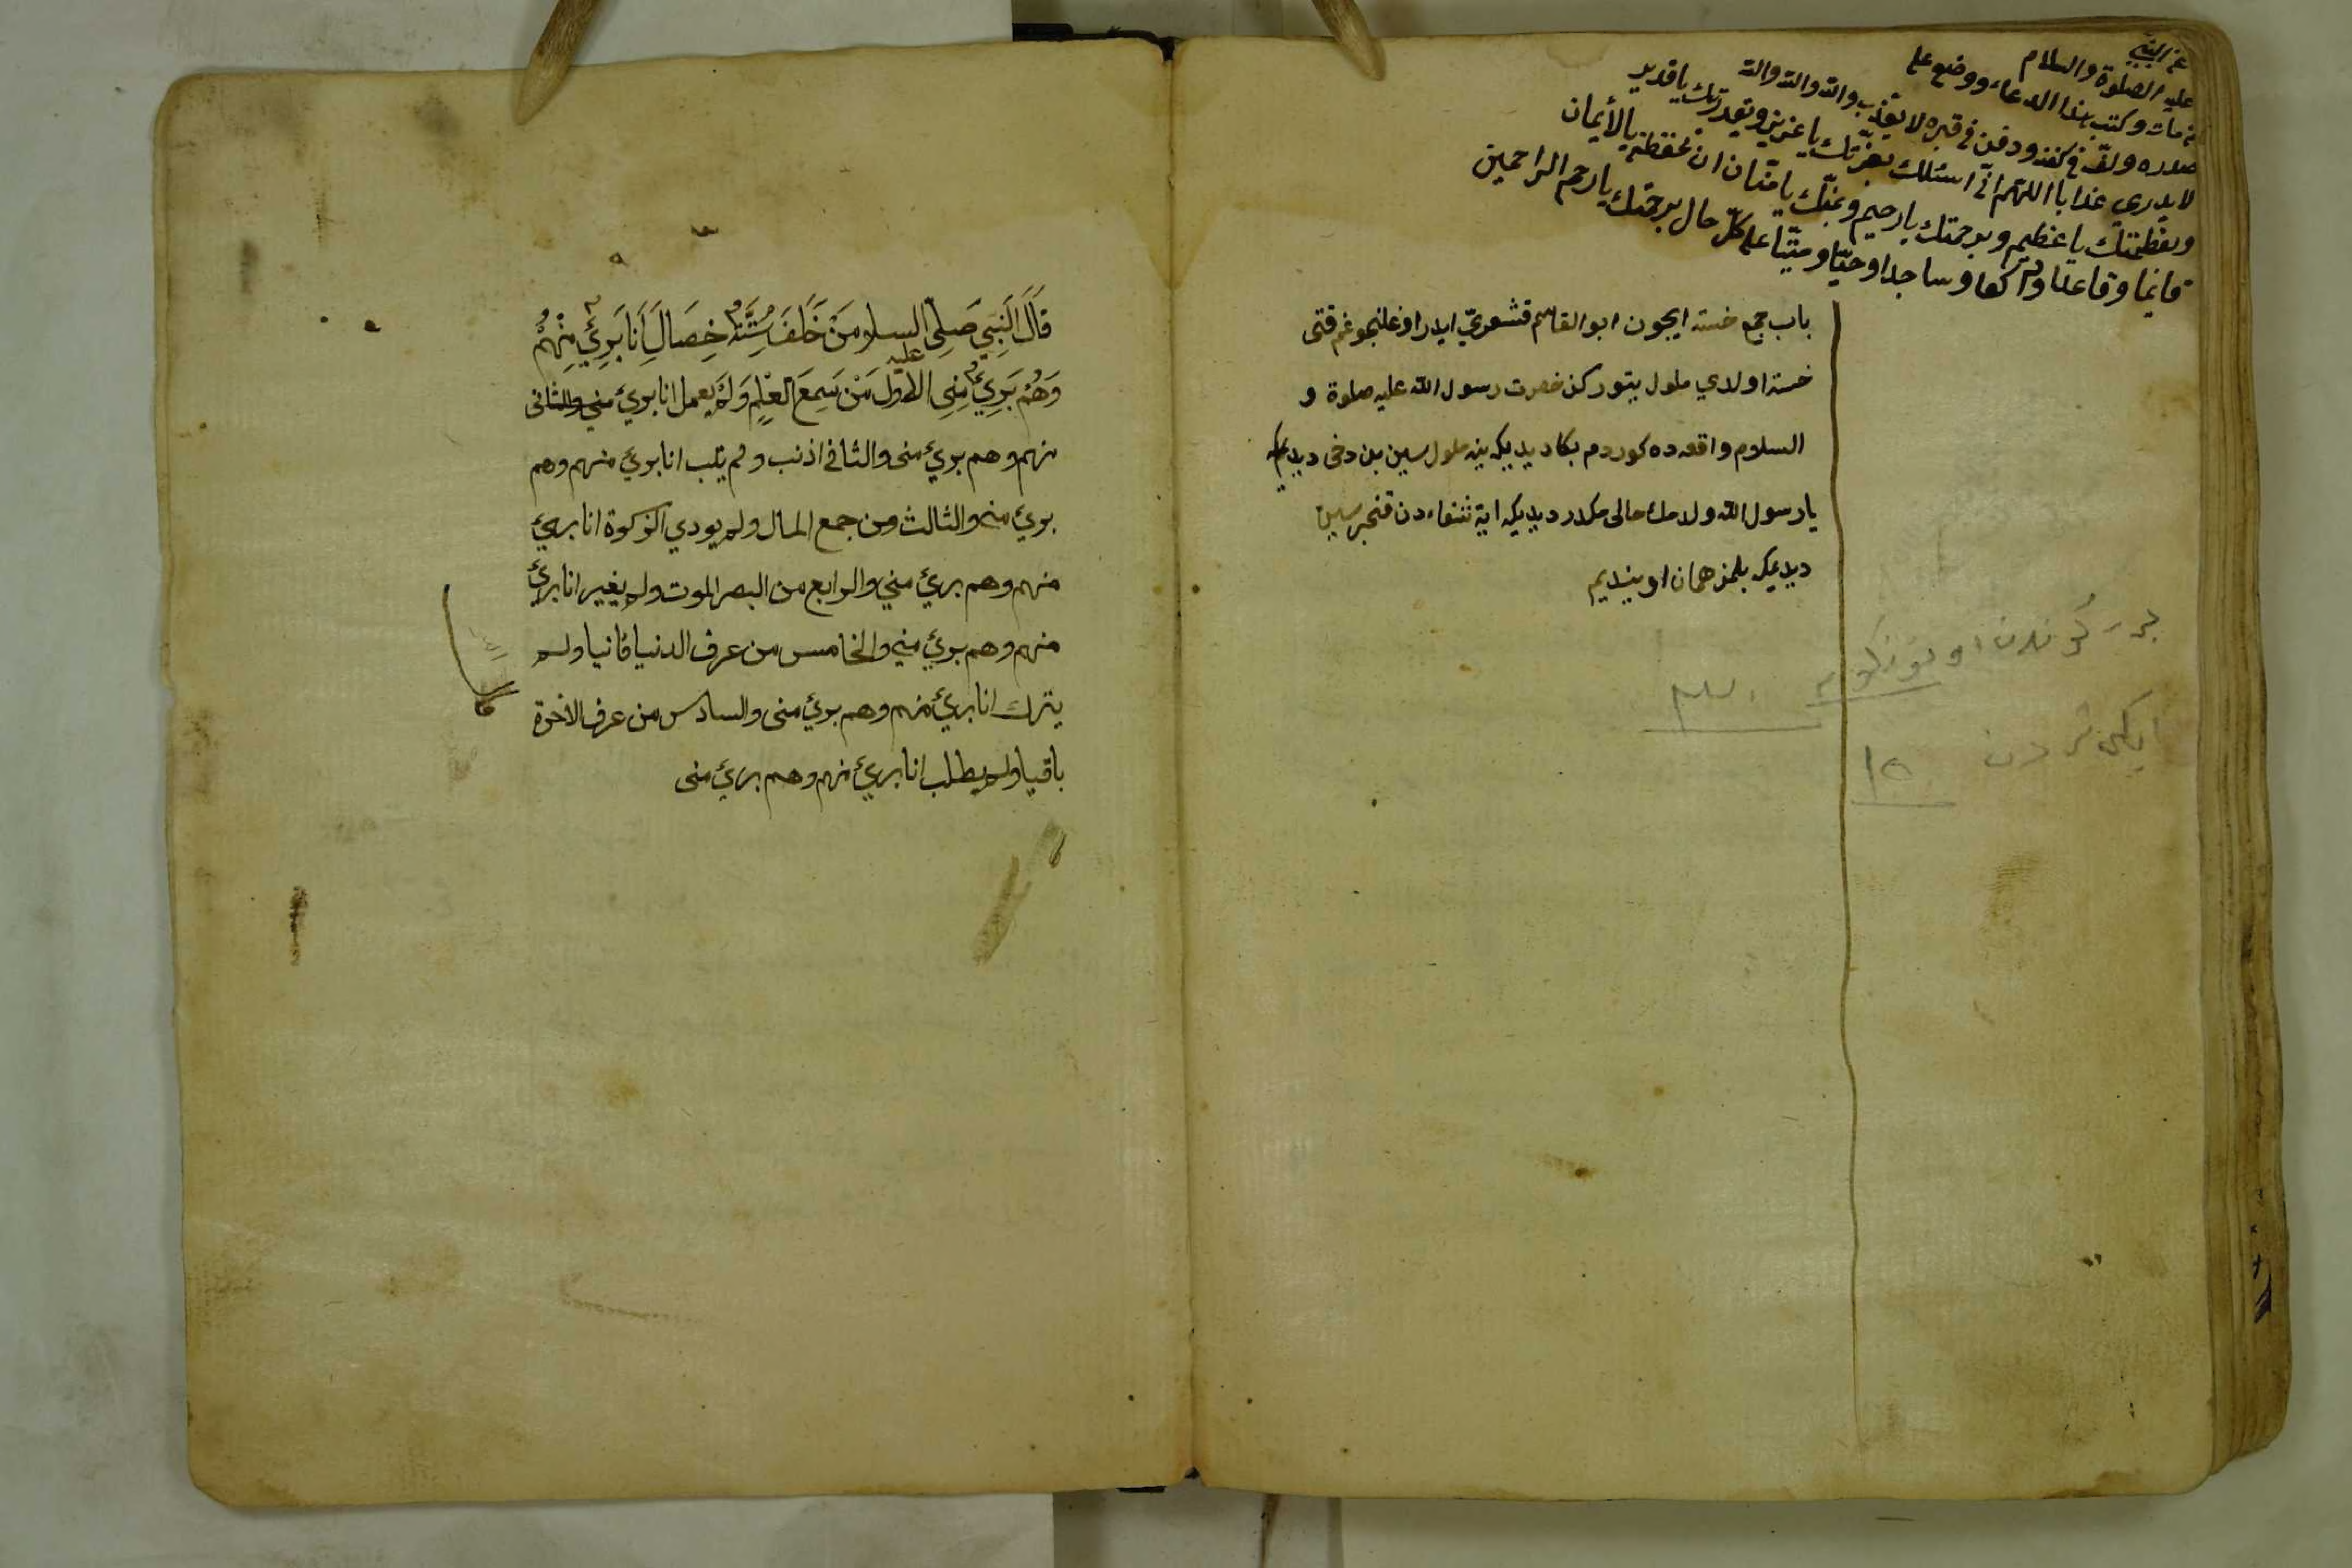 عن النبي
عليه الصلوة والسلام
من مات وكتب هذا الدعاء ووضع على
صدره ولف في كفنه ودفن في قبره لا يعذب والله والله والله
لا يدري عذابا اللهم اني اسئلك بعزتك يا عزيز وبقدرتك يا قدير
وبعظمتك يا عظيم وبرحمتك يا رحيم وبمنك يا منان ان تحفظه بالأيمان
قائما وقاعدا وراكعا وساجدا وحيا وميتا على كل حال برحمتك يا ارحم الراحمين
باب جمع خسته ايچون ابو القاسم قشيري ايدر اوغلنجوغم قتى
خسته اولدي ملول يتوركن حضرت رسول الله عليه صلوة و
السلام واقعه ده كوردم بكا ديديكه نه ملول سين بن دخى ديديمكه
يا رسول الله ولدمك حالى مكدر ديديكه اية شفاء دن قنجر سين
ديديمكه بلمز همان اويندم
قَالَ النَبِي صَلِى السلام مَنْ خَلَفَ سُتَّةُ خِصَالَ اَنَا بَرِئٌ مِنْهُمْ
عليه
وَهُمْ بَرِئٌ مِنِى الاول مَنْ سَمِعَ العِلمِ وَلَم يعمل انا برئ مني والثانى
منهم وهم برئ منى والثانى اذنب ولم يتب انا برئ منهم وهم
برئ منى والثالث من جمع المال ولم يودي الزكوة انا برئ
منهم وهم برئ مني والرابع من البصر الموت ولم يغير انا برئ
منهم وهم برئ منى والخامس من عرف الدنيا فانيا ولم
يترك انا برئ منهم وهم برئ منى والسادس من عرف الاخرة
باقيا ولم يطلب انا برئ منهم وهم برئ منى